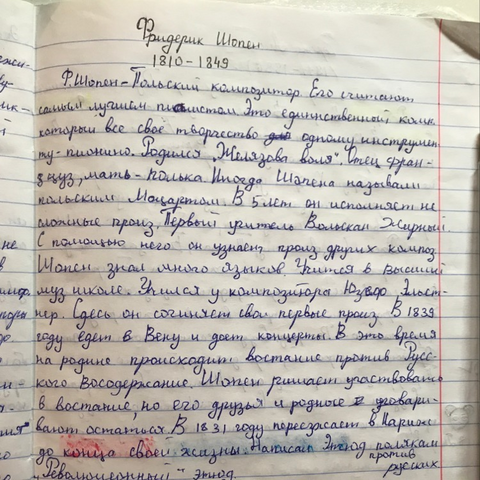 Фридерик Шопен
1810-1849
Ф.Шопен-Польский композитор Его считают
самым лучшем пианистом. Это единственный комп.
который все своё творчество одному инструмен-
ту-пионино. Родился „Желязова воля". Отец фран-
згуз, мать-полька. Иногда Шопена называли
польским Моцартом. В 5 лет он исполняет не
сложные произ. Первый учитель Вольскан Жирный.
С помощью него он узнает произ других композ
Шопен знал много языков Учится в высший
муз школе. Учился у композиторы Юзеф Эльст-
нер. Сдесь он сочиняет свои первые произ В 1839
году едет в Вену и дает концерты. В это время
на родине происходит востание против Русс-
кого Восодержание. Шопен ришает участвовать
в востание, но его друзья и родные уговари-
вают остаться В 1831 году переезжает в Париж
до конца своей жизни. Написал Этюд полякам
против
"Революционный" этюд. русских